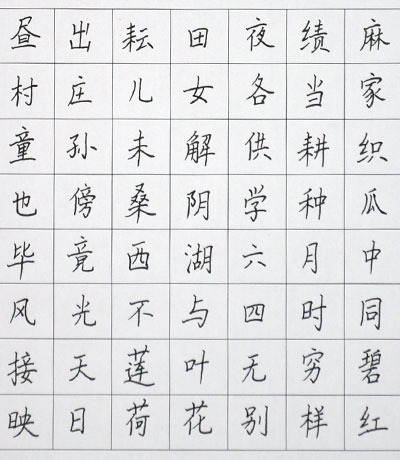 昼出耘田夜绩麻
村庄儿女各当家
童孙未解供耕织
也傍桑阴学种瓜
毕竟西湖六月中
风光不与四时同
接天莲叶无穷碧
映日荷花别样红